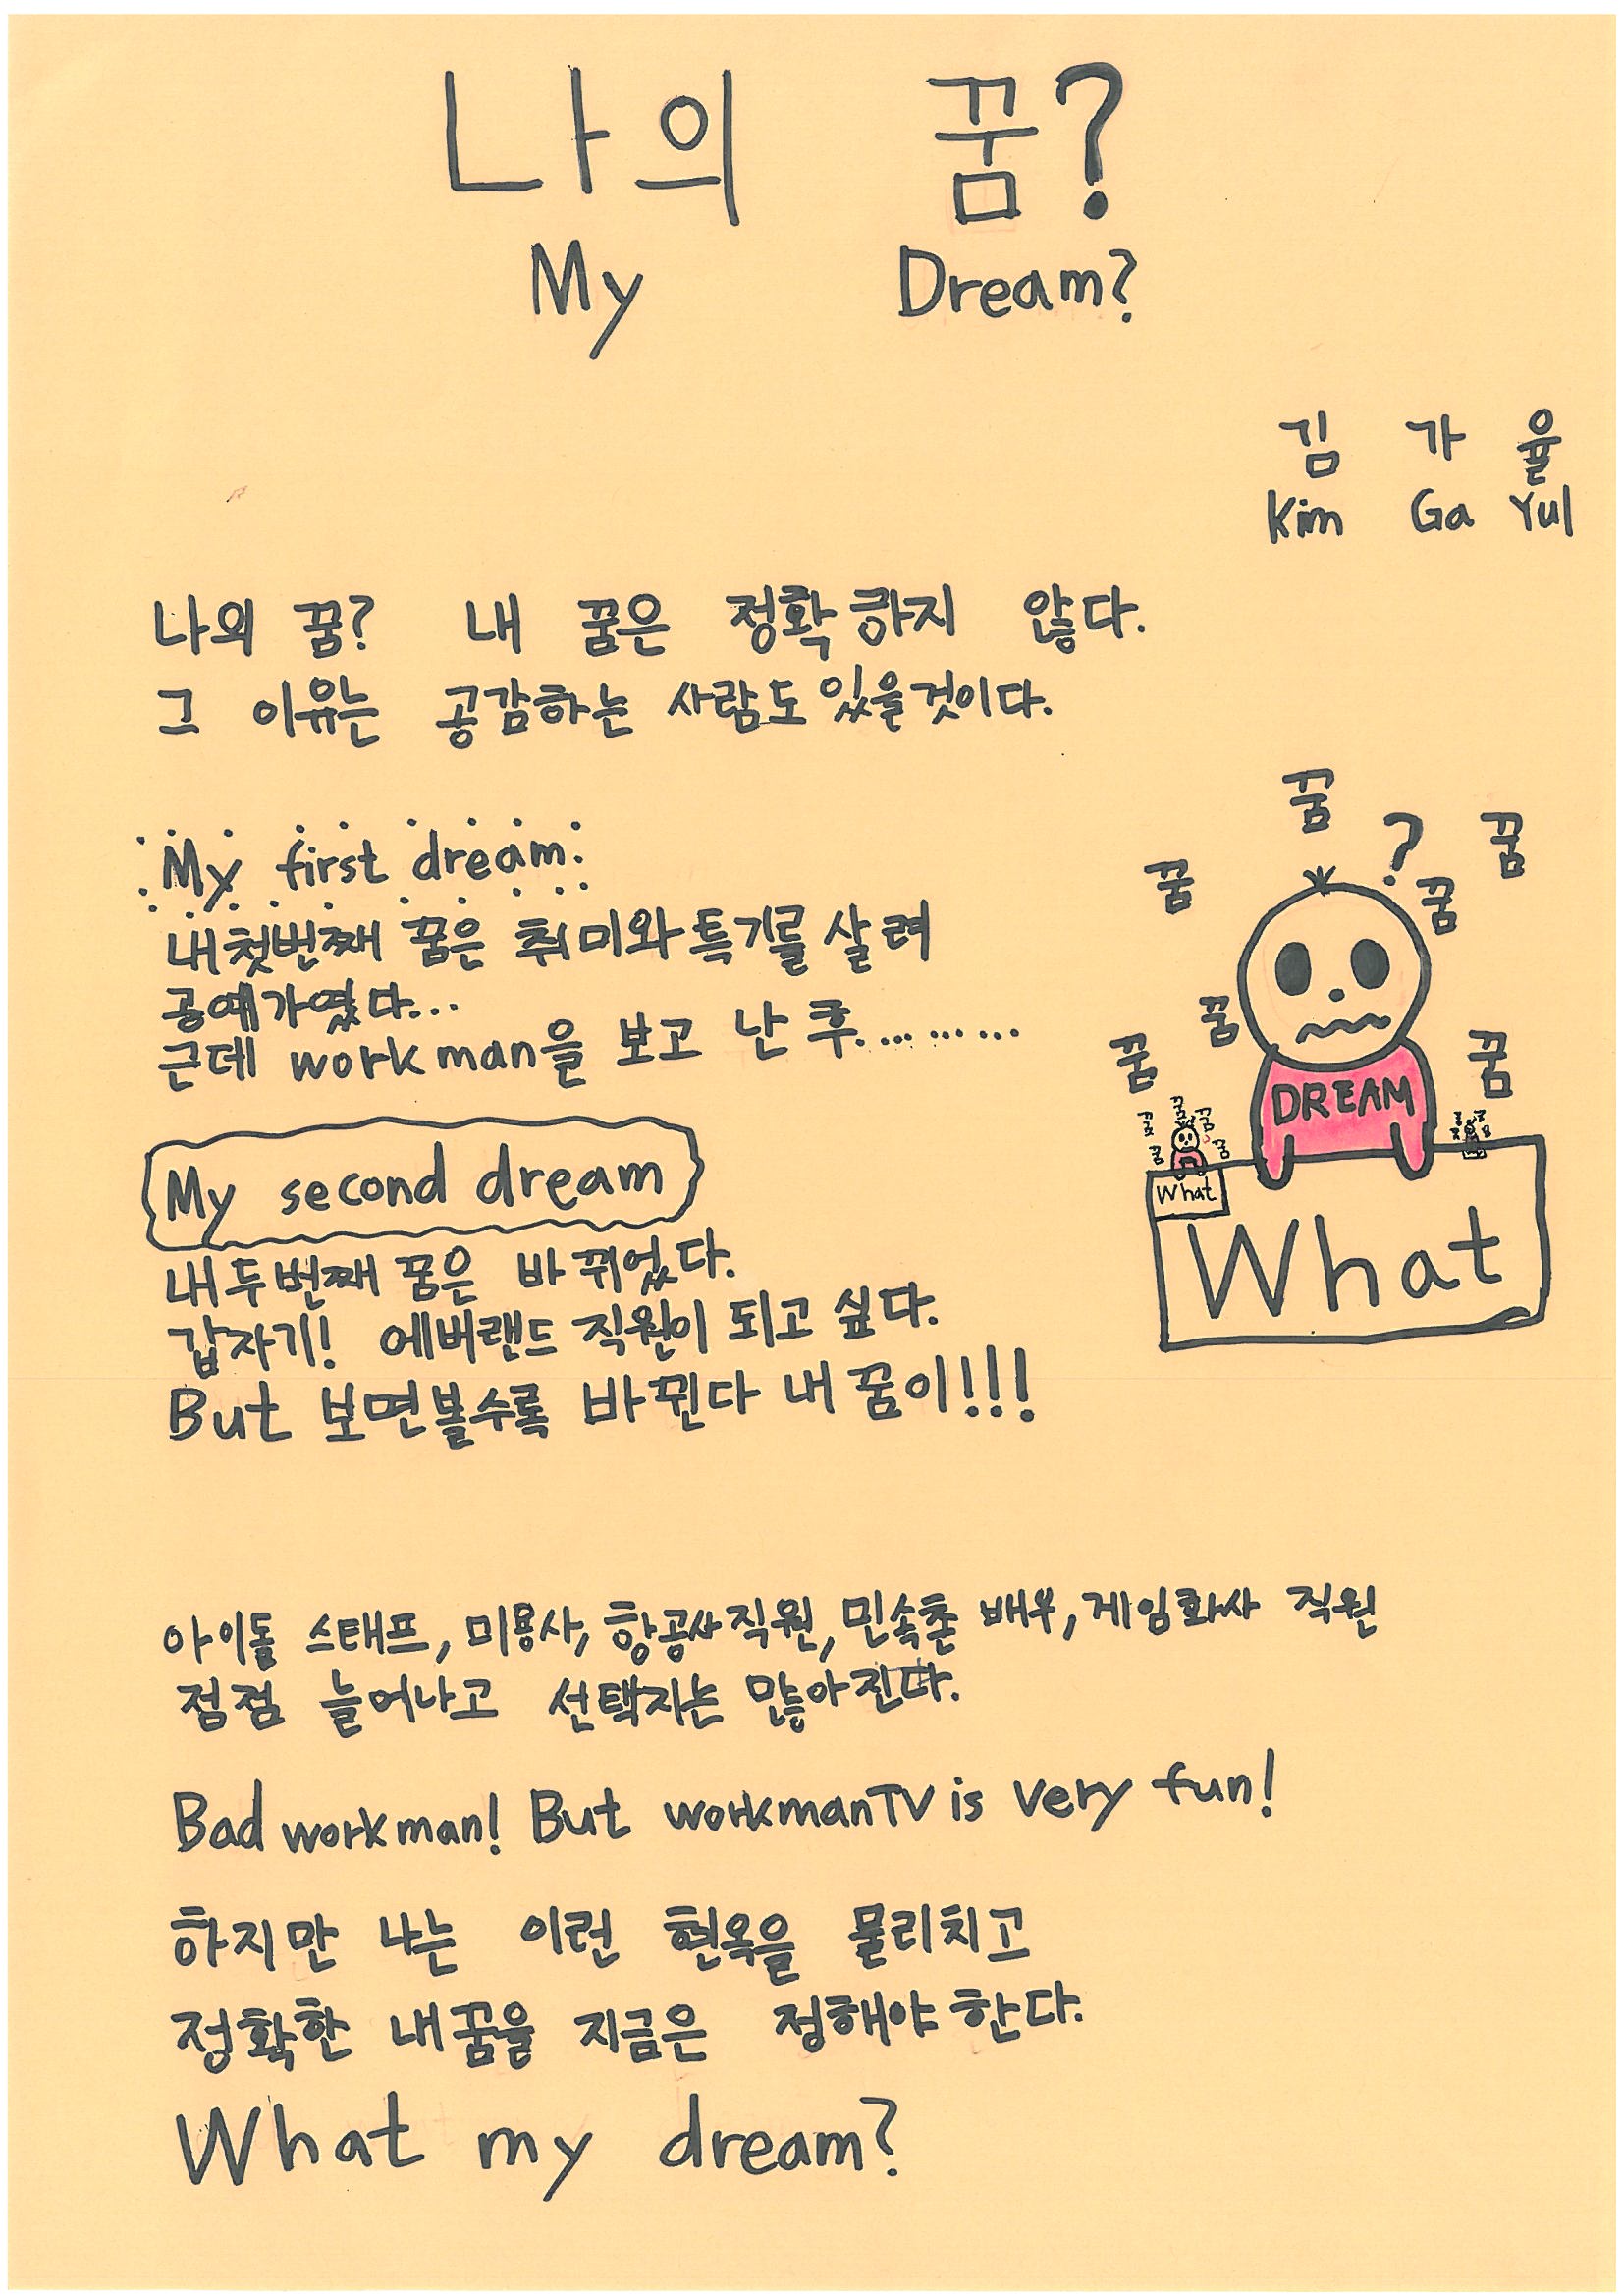 나의 꿈?
My Dream?
김 가 율
Kim Ga Yul
나의 꿈? 내 꿈은 정확하지 않다.
그 이유는 공감하는 사람도 있을것이다.
My first dream.
내첫번째 꿈은 취미와 특기를 살려
공예가였다...
근데 workman을 보고 난 후.........
꿈
?
꿈
꿈
꿈
꿈
꿈
꿈
DREAM
What
What
My second dream
내두번째 꿈은 바뀌었다.
갑자기! 에버랜드 직원이 되고 싶다.
But 보면볼수록 바뀐다 내 꿈이!!!
아이돌 스태프, 미용사, 항공사직원, 민속촌 배우, 게임화사 직원
점점 늘어나고 선택지는 많아진다.
Bad workman! But workmanTV is very fun!
하지만 나는 이런 현옥을 물리치고
정확한 내꿈을 지금은 정해야 한다.
What my dream?